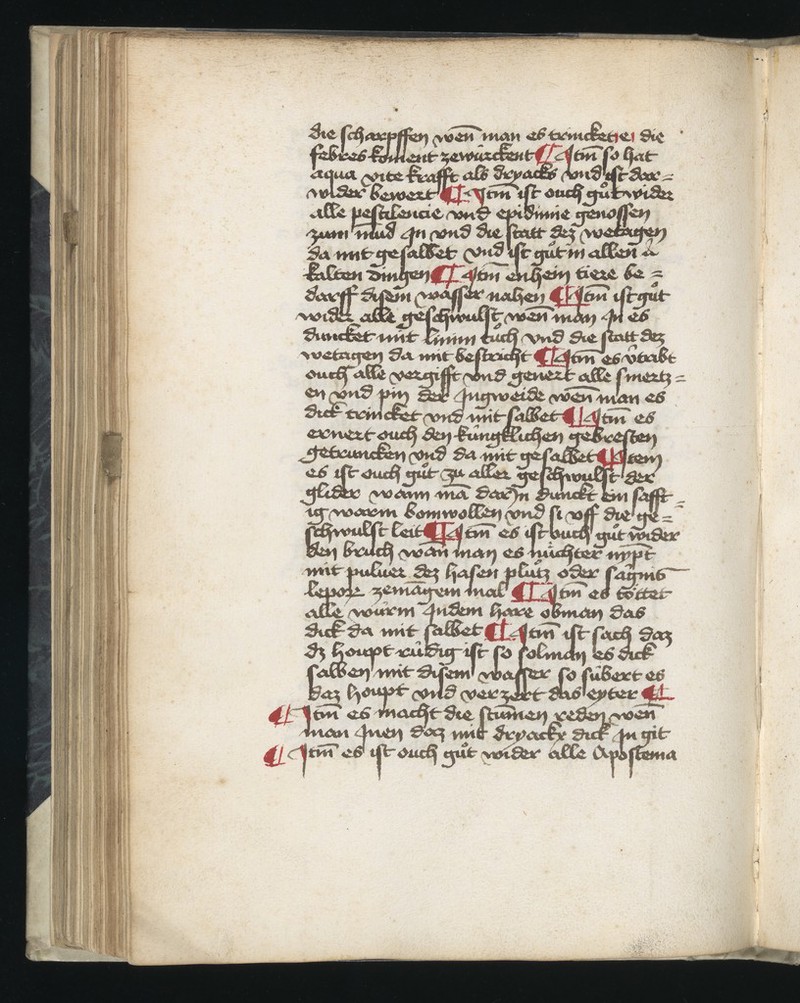 die scharpffen wen̄ man es trincket e die
febres koment ze würckent ¶ Itm̄ so hat
aqua vite krafft als dryacks vnd ist dar=
wider bewert ¶ Itm̄ ist ouch gůt wider
alle pestilencie vnd epidimie genossen
zum mūd In vnd die statt dez wetagen
da mit gesalbet vnd ist gůt in allen
kalten dingen ¶ Itm̄ enhein tiere be=
darff disem wasser nahen ¶ Itm̄ ist gůt
wider alle geschwulst wen̄ man In es
duncket mit linim tůch vnd die statt dez
wetagen da mit bestricht ¶ Itm̄ es v̓tribt
ouch alle vergifft vnd genert alle smertz=
en vnd pin der Ingweide wen̄ man es
dick trincket vnd mit salbet ¶ Itm̄ es
ernert ouch den küngklichen gebresten
getruncken vnd da mit gesalbet ¶ Item
es ist ouch gůt zů aller geschwulst der
glider wann mā dar In dunckt ein safft=
ig warm bomwollen vnd si vff die ge=
schwulst leit ¶ Itm̄ es ist ouch gůt wider
den bruch wan̄ man es nüchter nypt
mit puluer dez hasen plůtz oder sāgnis
lepor ze māgem mal ¶ Itm̄ es töttet
alle würm In dem hare ob man das
dick da mit salbet ¶ Itm̄ ist sach daz
dz houpt rüdig ist so sol man es dick
salben mit disem wasser so sübert es
daz houpt vnd verzert das eyter ¶
¶ Itm̄ es macht die stūmen reden wen̄
man Inen daz mit dryackx dick In git
¶ Itm̄ es ist ouch gůt wider alle Apostema